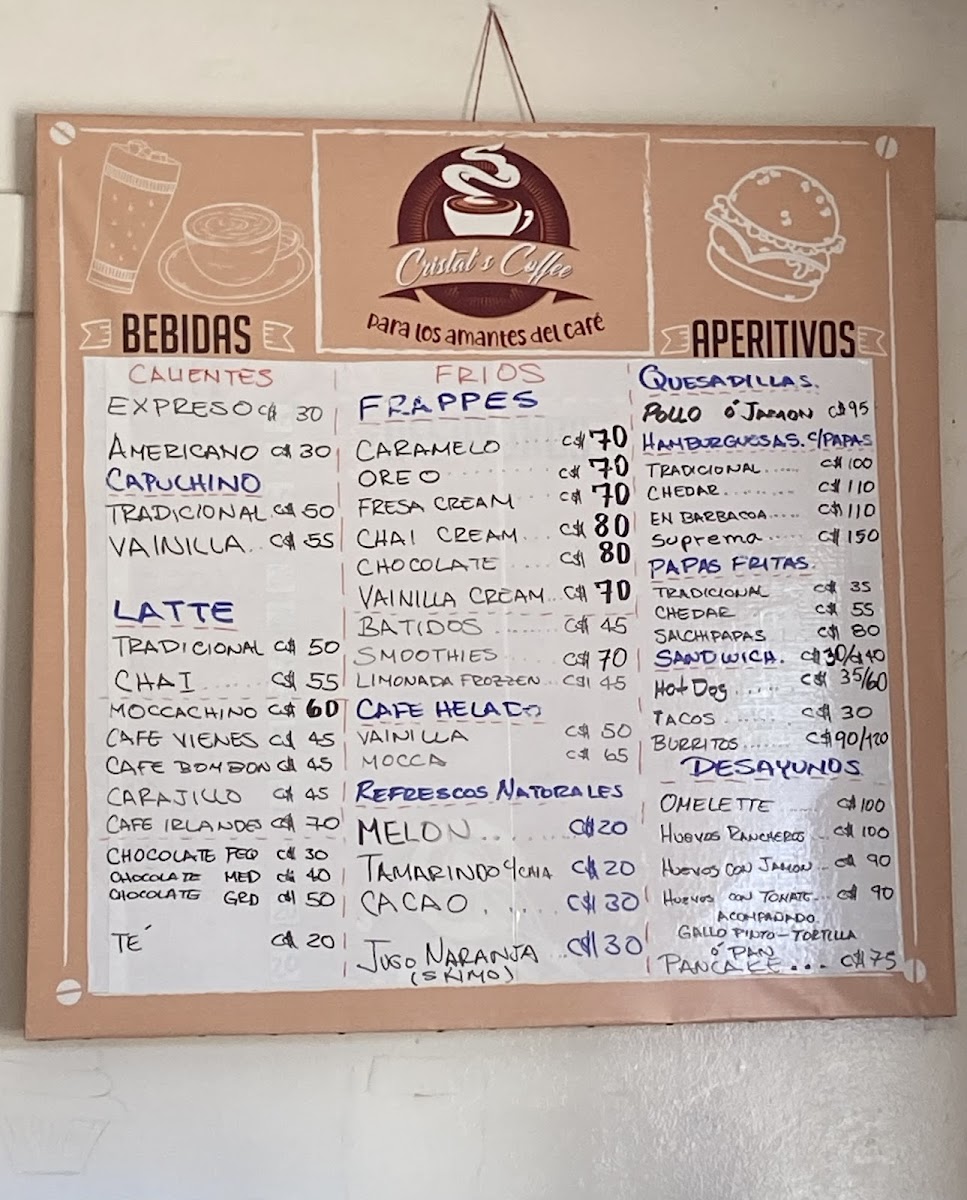 Cristal's Coffee
para los amantes del café
BEBIDAS
CALIENTES
EXPRESO C$ 30
AMERICANO C$ 30
CAPUCHINO
TRADICIONAL. C$ 50
VAINILLA.. C$ 55
LATTE
TRADICIONAL C$ 50
CHAI ...... C$ 55
MOCCACHINO C$ 60
CAFE VIENES C$ 45
CAFE BOMBON C$ 45
CARAJILLO C$ 45
CAFE IRLANDES C$ 70
CHOCOLATE PEQ C$ 30
CHOCOLATE MED C$ 40
CHOCOLATE GRD C$ 50
TE´ C$ 20
FRIOS
FRAPPES
CARAMELO ..... C$ 70
OREO ........ C$ 70
FRESA CREAM C$ 70
CHAI CREAM... C$ 80
CHOCOLATE .... C$ 80
VAINILLA CREAM.. C$ 70
BATIDOS ........ C$ 45
SMOOTHIES ..... C$ 70
LIMONADA FROZZEN.. C$ 45
CAFE HELADO
VAINILLA C$ 50
MOCCA C$ 65
REFRESCOS NATURALES
MELON..... C$ 20
TAMARINDO C/CHIA C$ 20
CACAO.... C$ 30
JUGO NARANJA .. C$ 30
(SKIMO)
APERITIVOS
QUESADILLAS.
POLLO Ó JAMON C$ 95
HAMBURGUESAS. C/PAPAS
TRADICIONAL..... C$ 100
CHEDAR......... C$ 110
EN BARBACOA..... C$ 110
Suprema..... C$ 150
PAPAS FRITAS.
TRADICIONAL C$ 35
CHEDAR C$ 55
SALCHIPAPAS C$ 80
SANDWICH. C$ 30/C$ 40
Hot Dog..... C$ 35/60
TACOS ....... C$ 30
BURRITOS....... C$ 90/120
DESAYUNOS
OMELETTE ..... C$ 100
HUEVOS RANCHEROS .. C$ 100
HUEVOS CON JAMON.. C$ 90
HUEVOS CON TOMATE... C$ 90
ACOMPAÑADO
GALLO PINTO - TORTILLA
Ó PAN
PANCAKE... C$ 75